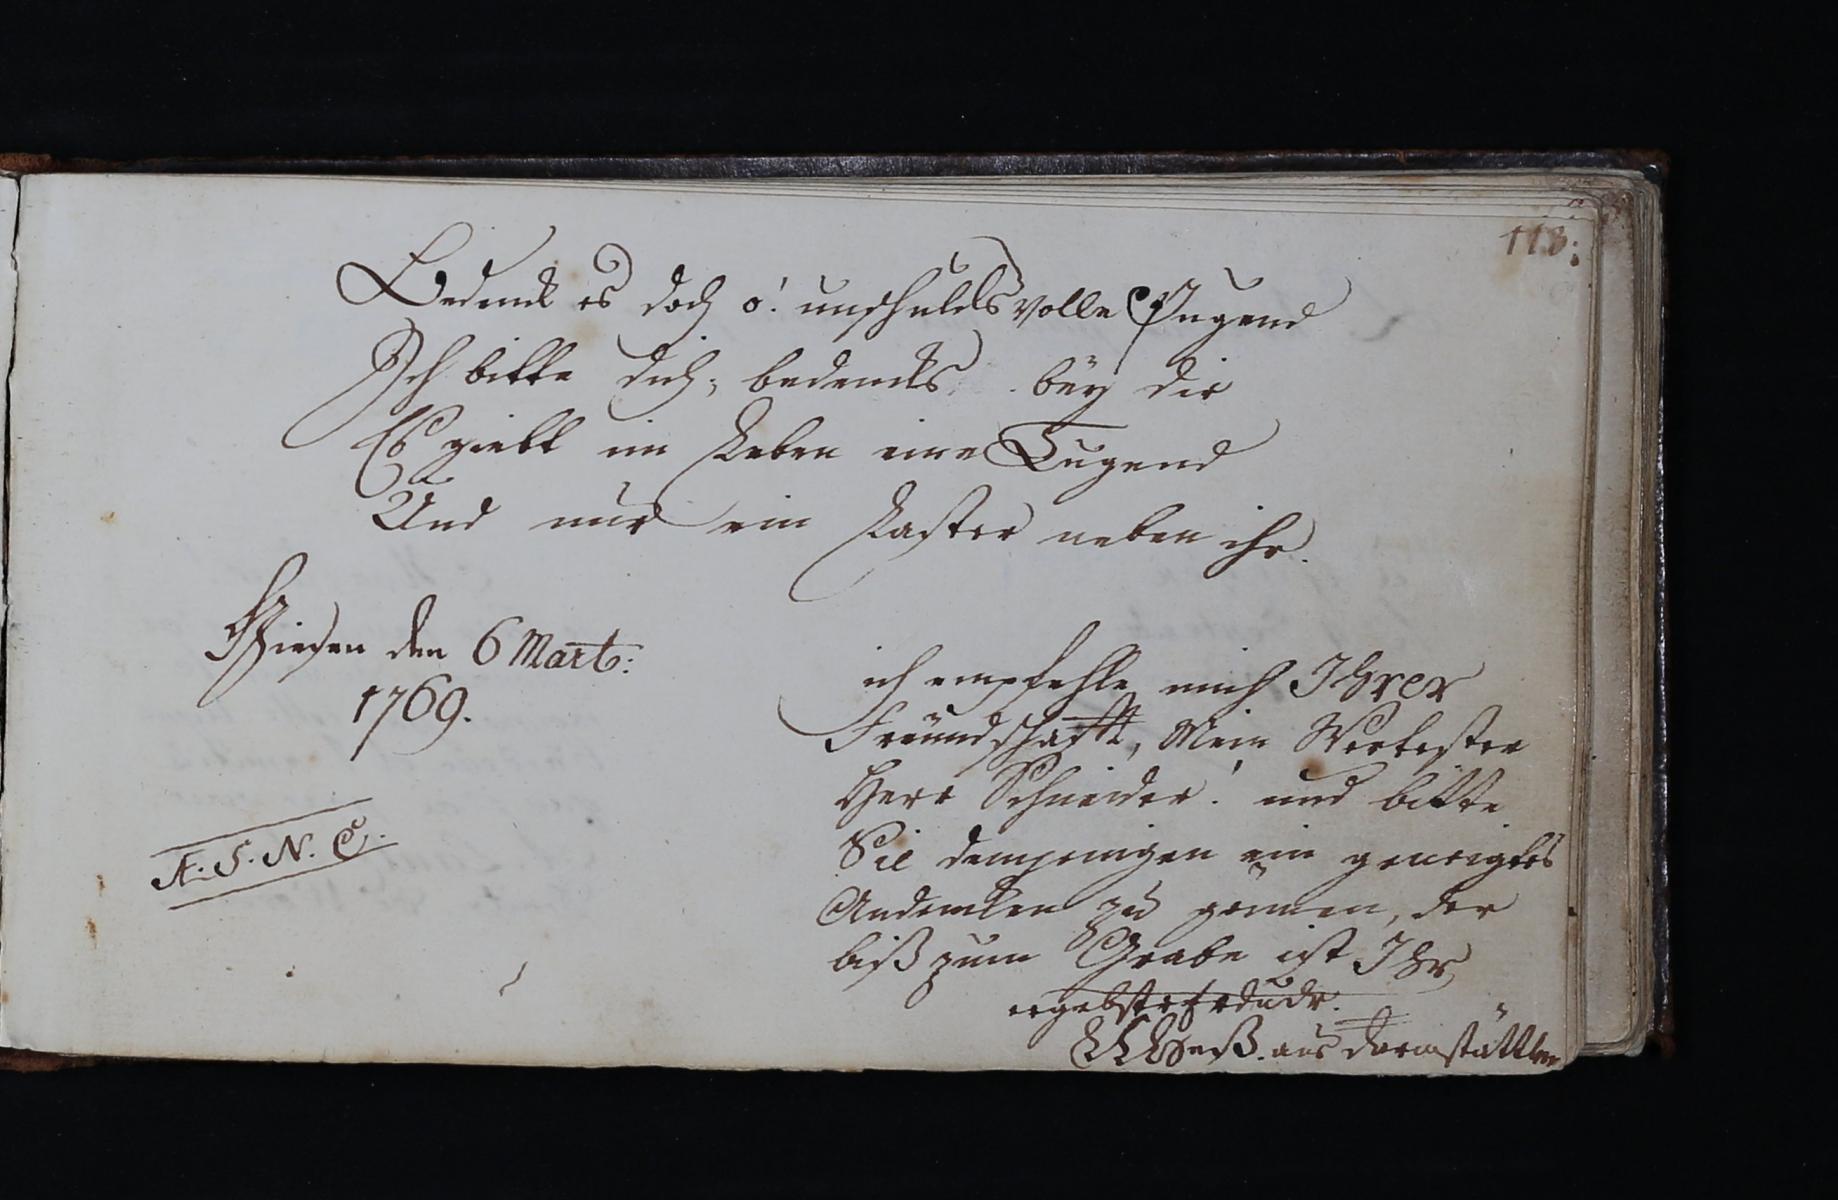 113.
Bedenck es doch o! unschulds volle Jugend
Ich bitte dich, bedencks bey dir
Es giebt im Leben eine Tugend
Und nur ein Laster neben ihr.
Giesen den 6 Mart:
1769.
ich empfehle mich Ihrer
Freündschafft, Mein Werthester
Herr Schneider! und bitte
Sie demjenigen ein geneigtes
Andencken zu gönnen, der
biß zum Grabe ist Ihr
ergebster
Heß. aus
A. S. N. C.